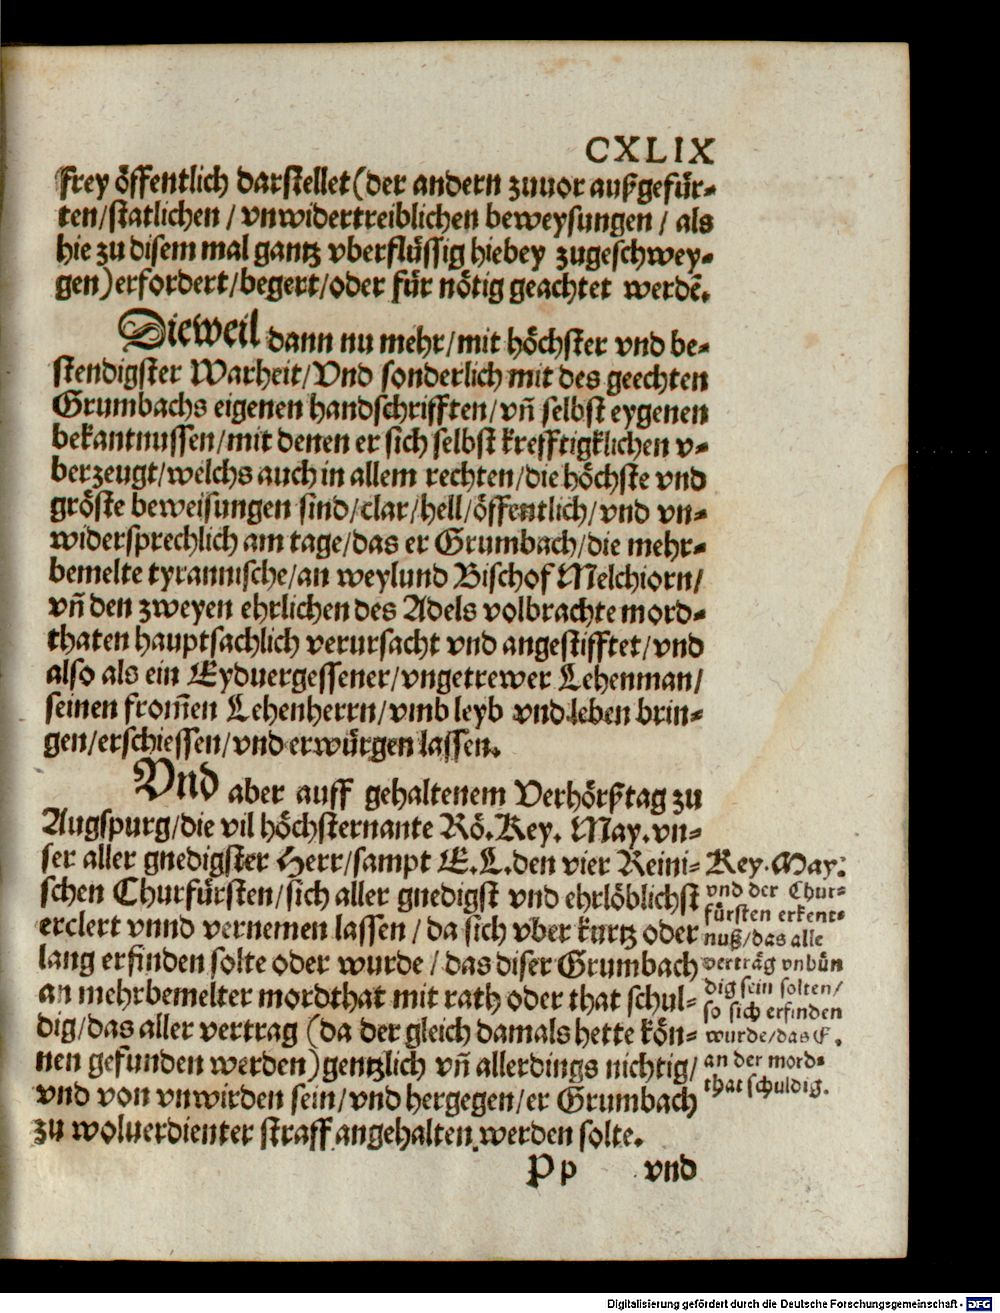 CXLIX
frey öffentlich darstellet (der andern zuuor außgefür-
ten/statlichen / vnwidertreiblichen beweysungen / als
hie zu disem mal gantz vberflüssig hiebey zugeschwey-
gen) erfordert/begert/oder für nötig geachtet werdē.
Dieweil dann nu mehr/mit höchster vnd be-
stendigster Warheit/Vnd sonderlich mit des geechten
Grumbachs eigenen handschrifften/vñ selbst eygenen
bekantnussen/mit denen er sich selbst krefftigklichen v-
berzeugt/welchs auch in allem rechten/die höchste vnd
gröste beweisungen sind/clar/hell/öffentlich/vnd vn-
widersprechlich am tage/das er Grumbach/die mehr-
bemelte tyrannische/an weylund Bischof Melchiorn/
vñ den zweyen ehrlichen des Adels volbrachte mord-
thaten hauptsachlich verursacht vnd angestifftet/vnd
also als ein Eyduergessener/vngetrewer Lehenman/
seinen from̃en Lehenherrn/vmb leyb vnd leben brin-
gen/erschiessen/vnd erwürgen lassen.
Vnd aber auff gehaltenem Verhörßtag zu
Augspurg/die vil höchsternante Rö. Key. May. vn-
ser aller gnedigster Herr/sampt E. L. den vier Reini-
schen Churfürsten/sich aller gnedigst vnd ehrlöblichst
erclert vnnd vernemen lassen / da sich vber kurtz oder
lang erfinden solte oder wurde / das diser Grumbach
an mehrbemelter mordthat mit rath oder that schul-
dig/das aller vertrag (da der gleich damals hette kön-
nen gefunden werden) gentzlich vñ allerdings nichtig/
vnd von vnwirden sein/vnd hergegen/er Grumbach
zu woluerdienter straff angehalten werden solte.
Key. May.
vnd der Chur-
fürsten erkent-
nuß/das alle
verträg vnbün
dig sein solten/
so sich erfinden
wurde/das G.
an der mord-
that schuldig.
Pp vnd
Digitalisierung gefördert durch die Deutsche Forschungsgemeinschaft - DFG